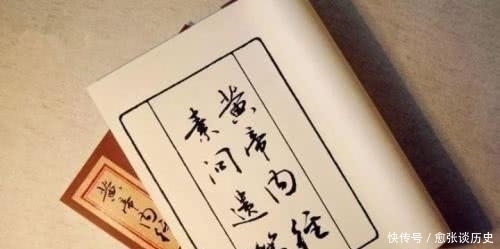 黄帝内经
素问遗
黄帝内经
快传号/愈张谈历史